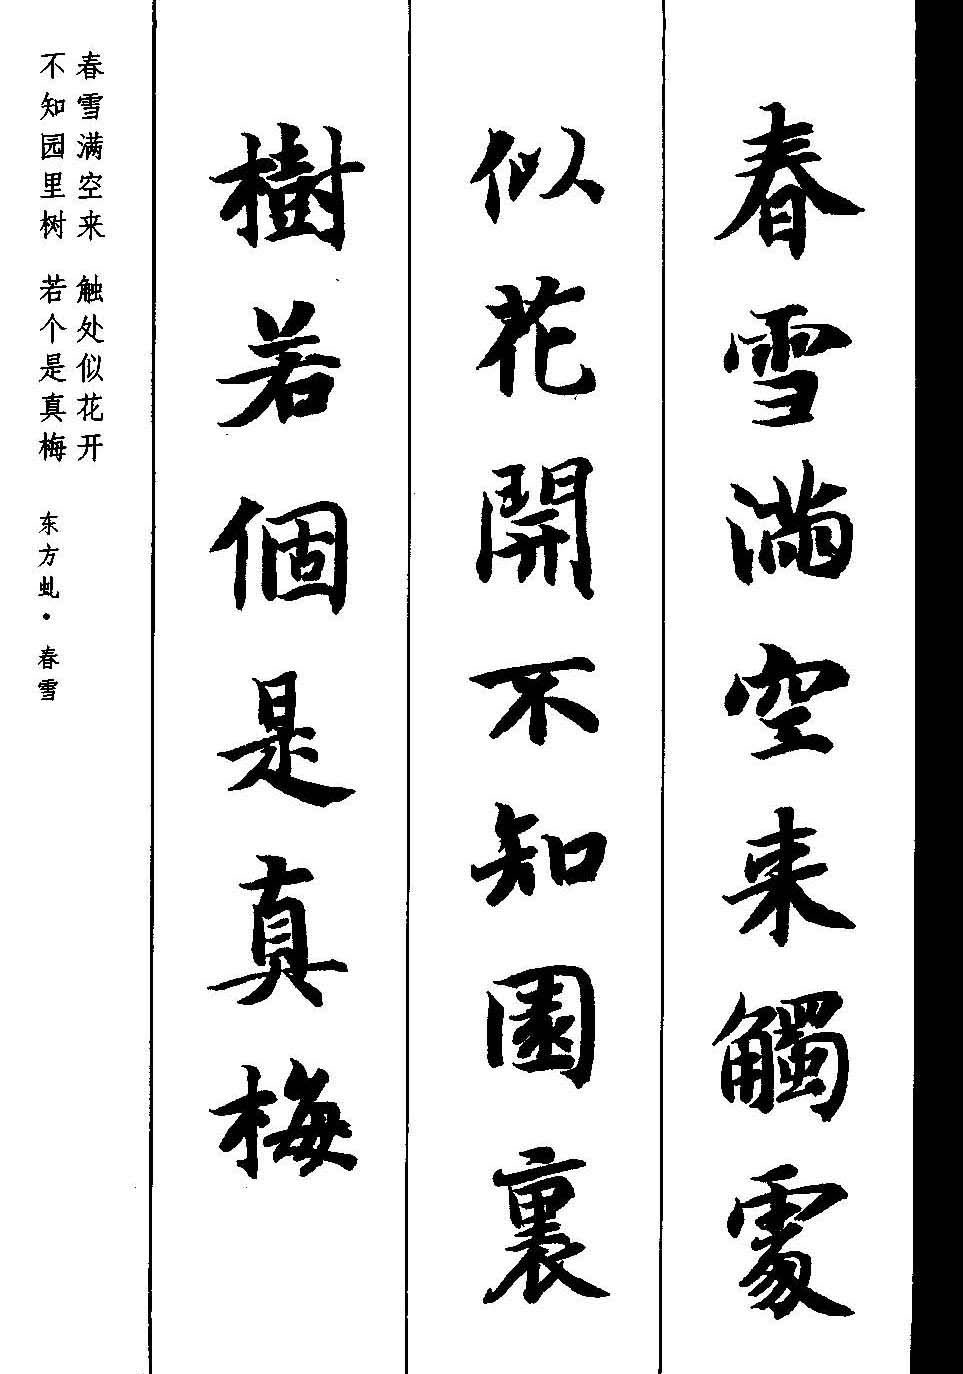 春雪滿空来觸處
似花開不知園裏
樹若個是真梅
春雪满空来 触处似花开
不知园里树 若个是真梅
东方虬·春雪